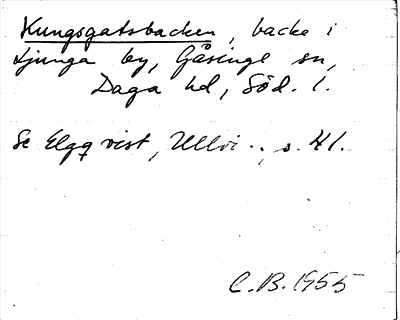 Kungsgatsbacken, backe i
Ljunga by, Gåsinge sn,
Daga hd, Söd. l.
Se Elgqvist, Ullvi.., s. 41.
C.B. 1955